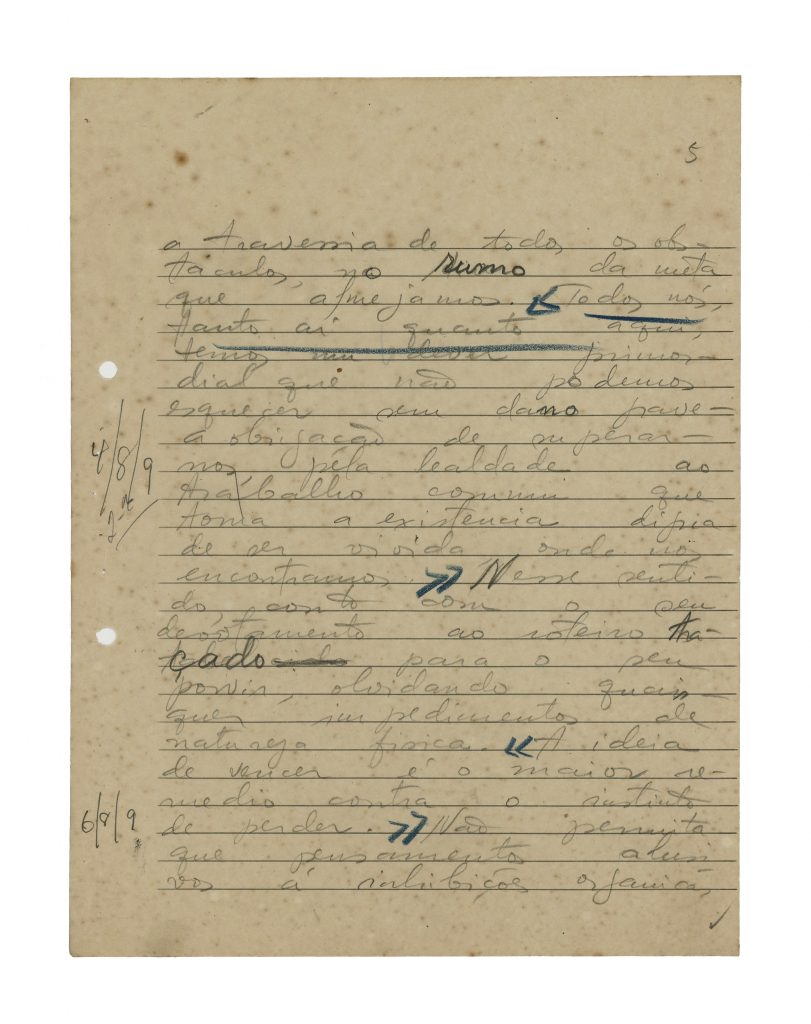 5
a travessia de todos os obs-
taculos, no rumo da meta
que almejamos. Todos nós,
tanto ai quanto aqui,
temos um dever primor-
dial que não podemos
esquecer sem dano grave -
a obrigação de superar-
nos pela lealdade ao
trabalho commum que
torna a existencia digna
de ser vivida onde nos
encontramos. Nesse senti-
do, conto com o seu
devotamento ao roteiro tra-
çado para o seu
porvir, olvidando quais-
quer impedimentos de
natureza fisica. A ideia
de vencer é o maior re-
medio contra o instinto
de perder. Não permita
que pensamentos alusi
vos á inhibições organicas,
4/8/9
6/8/9